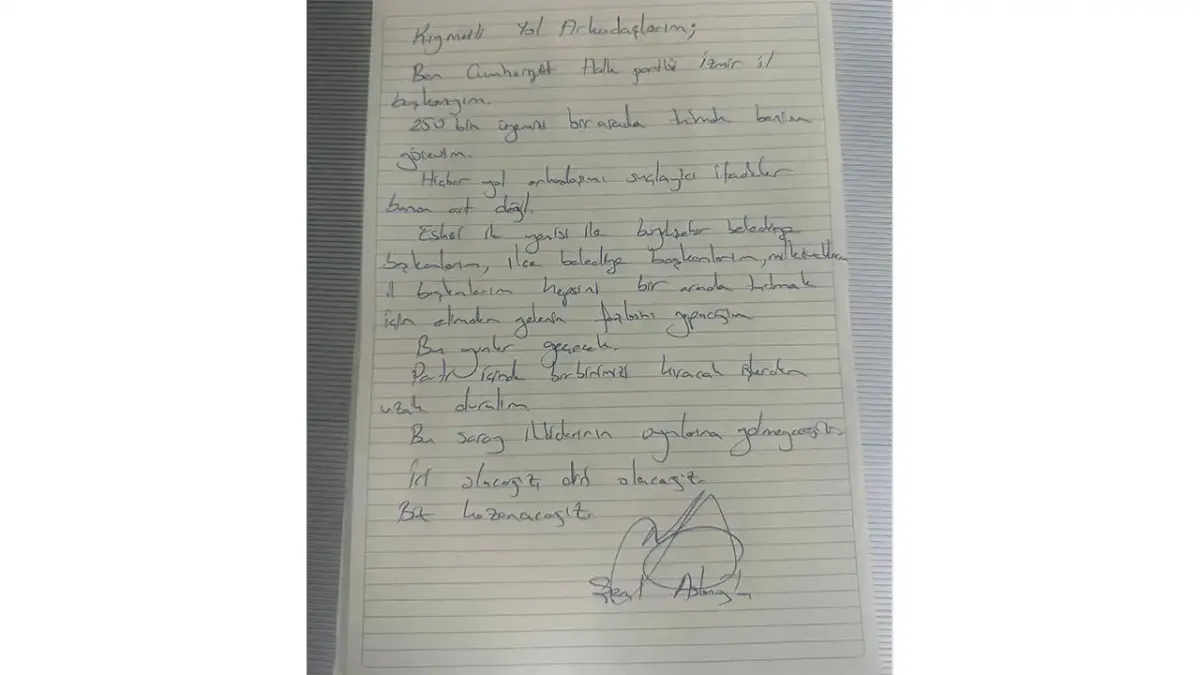 Kıymetli Yol Arkadaşlarım;
Ben Cumhuriyet Halk Partisi İzmir il
başkanıyım.
250 bin üyemizi bir arada tutmak benim
görevim.
Hiçbir yol arkadaşımı suçlayıcı ifadeler
bana ait değil.
Eskisi ile yenisi ile büyükşehir belediye
başkanlarım, ilçe belediye başkanlarım, milletvekillerim
il başkanlarım hepsini bir arada tutmak
için elimden gelenin fazlasını yapacağım
Bu günler geçecek.
Parti içinde birbirimizi kıracak işlerden
uzak duralım.
Bu saray iktidarının oyunlarına gelmeyeceğiz
İri olacağız, diri olacağız.
Biz kazanacağız.
Şenol Aslanoğlu